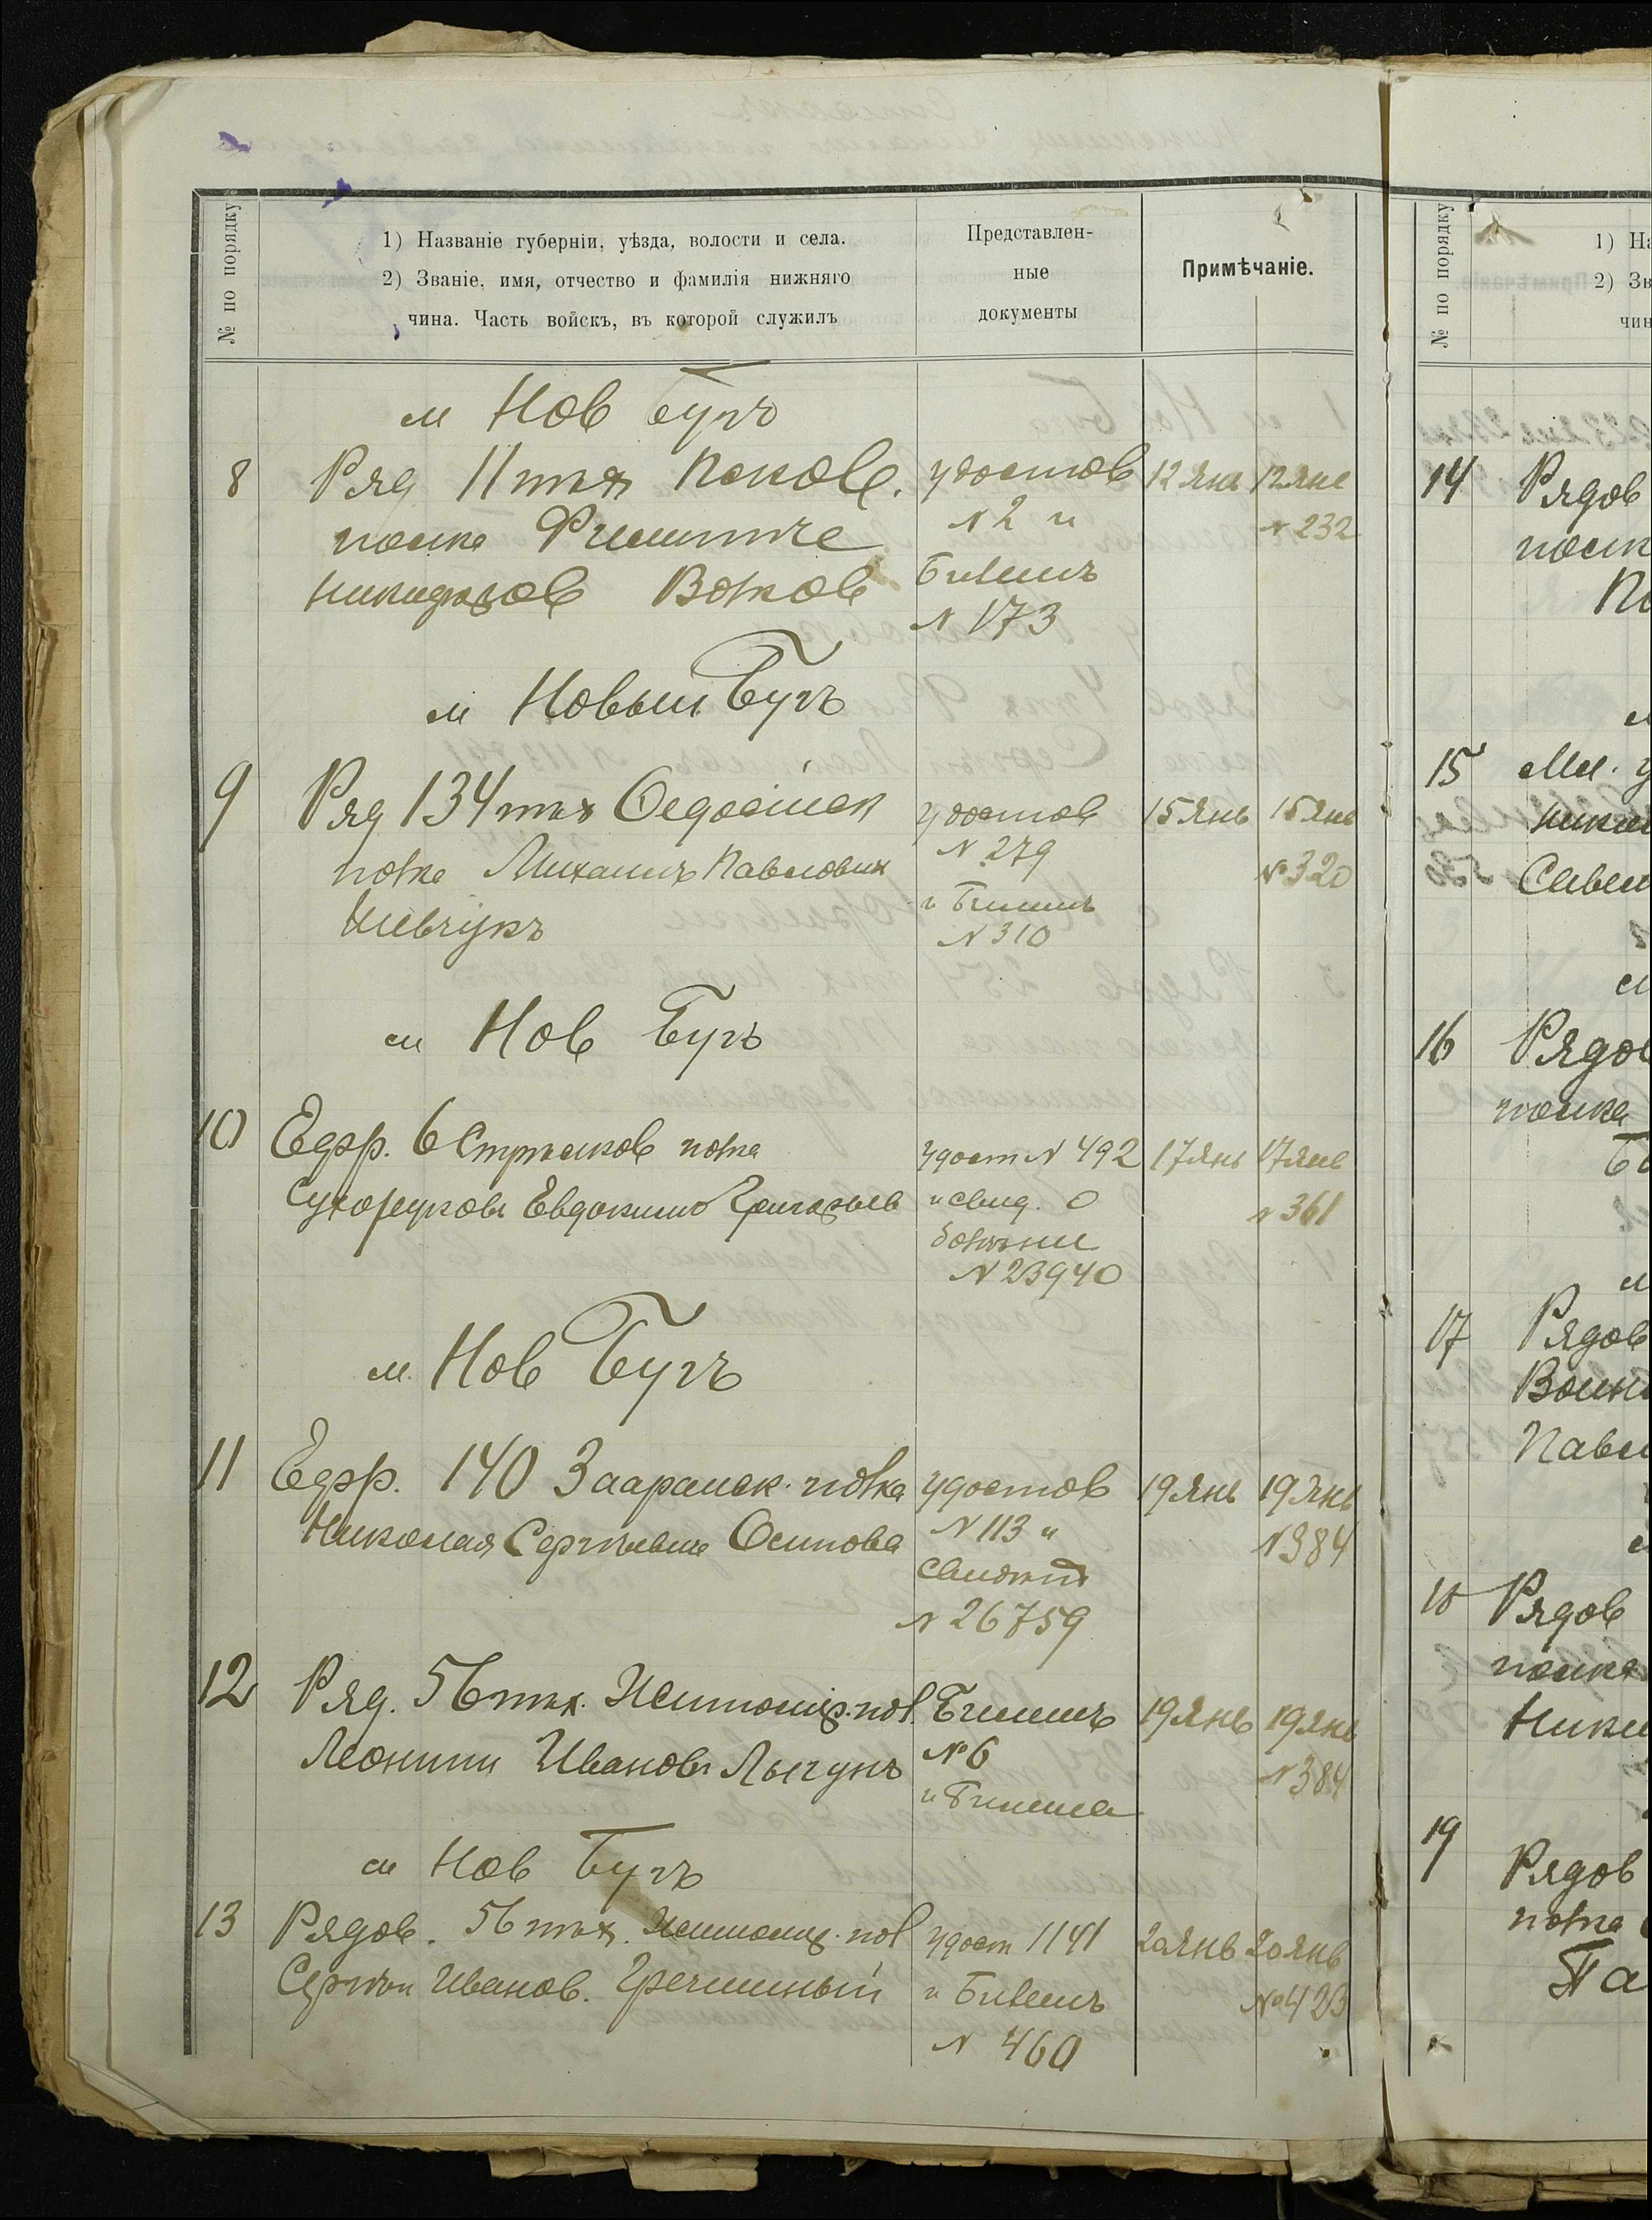 № по порядку
1) Названіе губерніи, уѣзда, волости и села.
2) Званіе, имя, отчество и фамилія нижняго
чина. Часть войскъ, въ которой служилъ
Представлен-
ные
документы
Примѣчаніе.
м Нов Бугъ
8 Ряд 11 пѣх Псков. удостов 12 янв 12 янв
полка Филиппе № 2 и № 232
Никифоров Волков Билетъ
№ 173
м Новый Бугъ
9 Ряд 134 пѣх Ѳеодосійск удостов 15 янв 15 янв
полка Михаилъ Павлович № 279 № 320
Шевчукъ и Билетъ
№ 310
м Нов Бугъ
10 Ефр. 6 Стрѣлков полка удост № 492 17 янв 17 янв
Сухоруковъ Евдокимъ Григорьев и свид. о № 361
болѣзни
№ 23940
м. Нов Бугъ
11 Ефр. 140 Зарайск. полка удостов 19 янв 19 янв
Николая Сергѣевича Осипова № 113 и № 384
свидѣт
№ 26759
12 Ряд. 56 пѣх. Житомир. пол. Билетъ 19 янв 19 янв
Леонтій Ивановъ Лыгунъ № 6 № 384
и Билета
м Нов Бугъ
13 Рядов. 56 пѣх. Житомир. пол удост 1141 20 янв 20 янв
Сергѣй Иванов. Гречишный и Билетъ № 423
№ 460
№ по порядку
1) На
2) Зв
чин
14 Рядов
полк
15 Мл. у
Савел
16 Рядов
полка
17 Рядов
Воин
Павл
18 Рядов
полка
Ники
19 Рядов
полка
Па